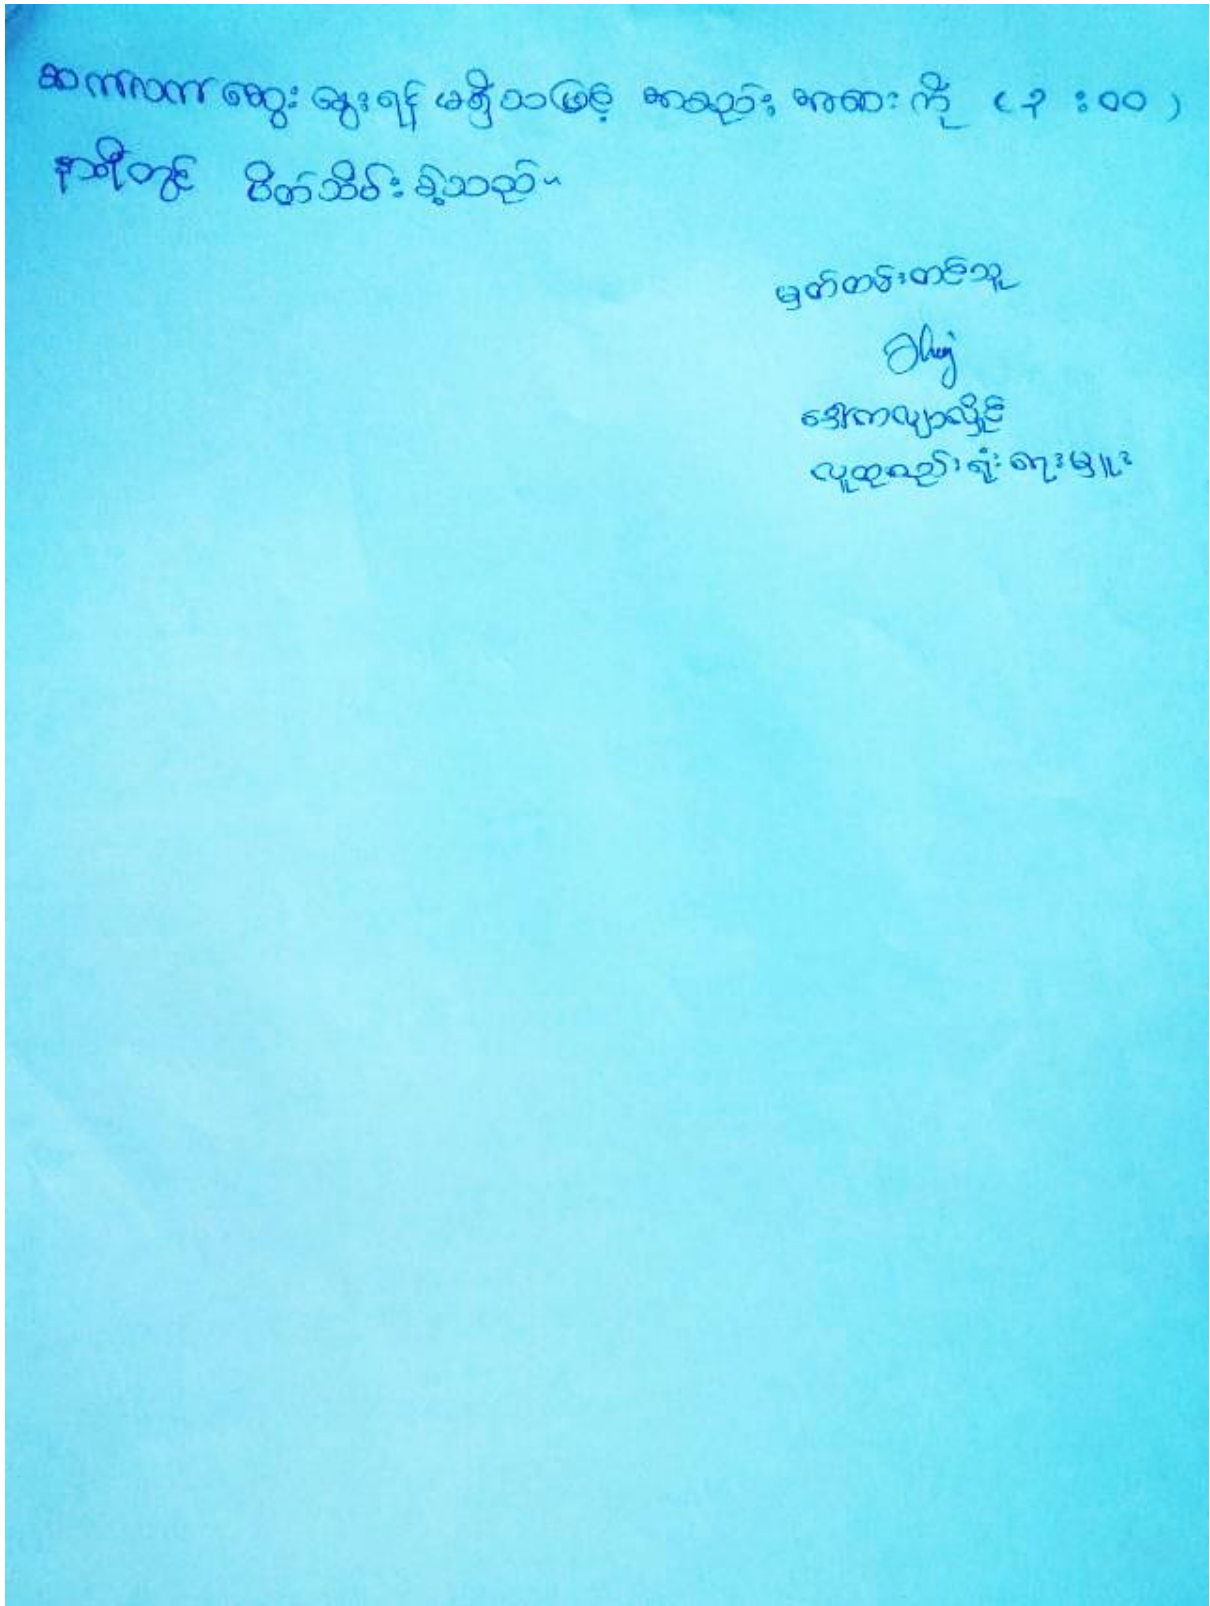 ဆက်လက်ဆွေးနွေးရန် မရှိသဖြင့် အစည်းအဝေးကို ( ၃ : ၀၀ )
နာရီတွင် ပိတ်သိမ်းခဲ့သည်။
မှတ်တမ်းတင်သူ
ဒေါ်ကလျာလှိုင်
လူထုစည်းရုံးရေးမှူး